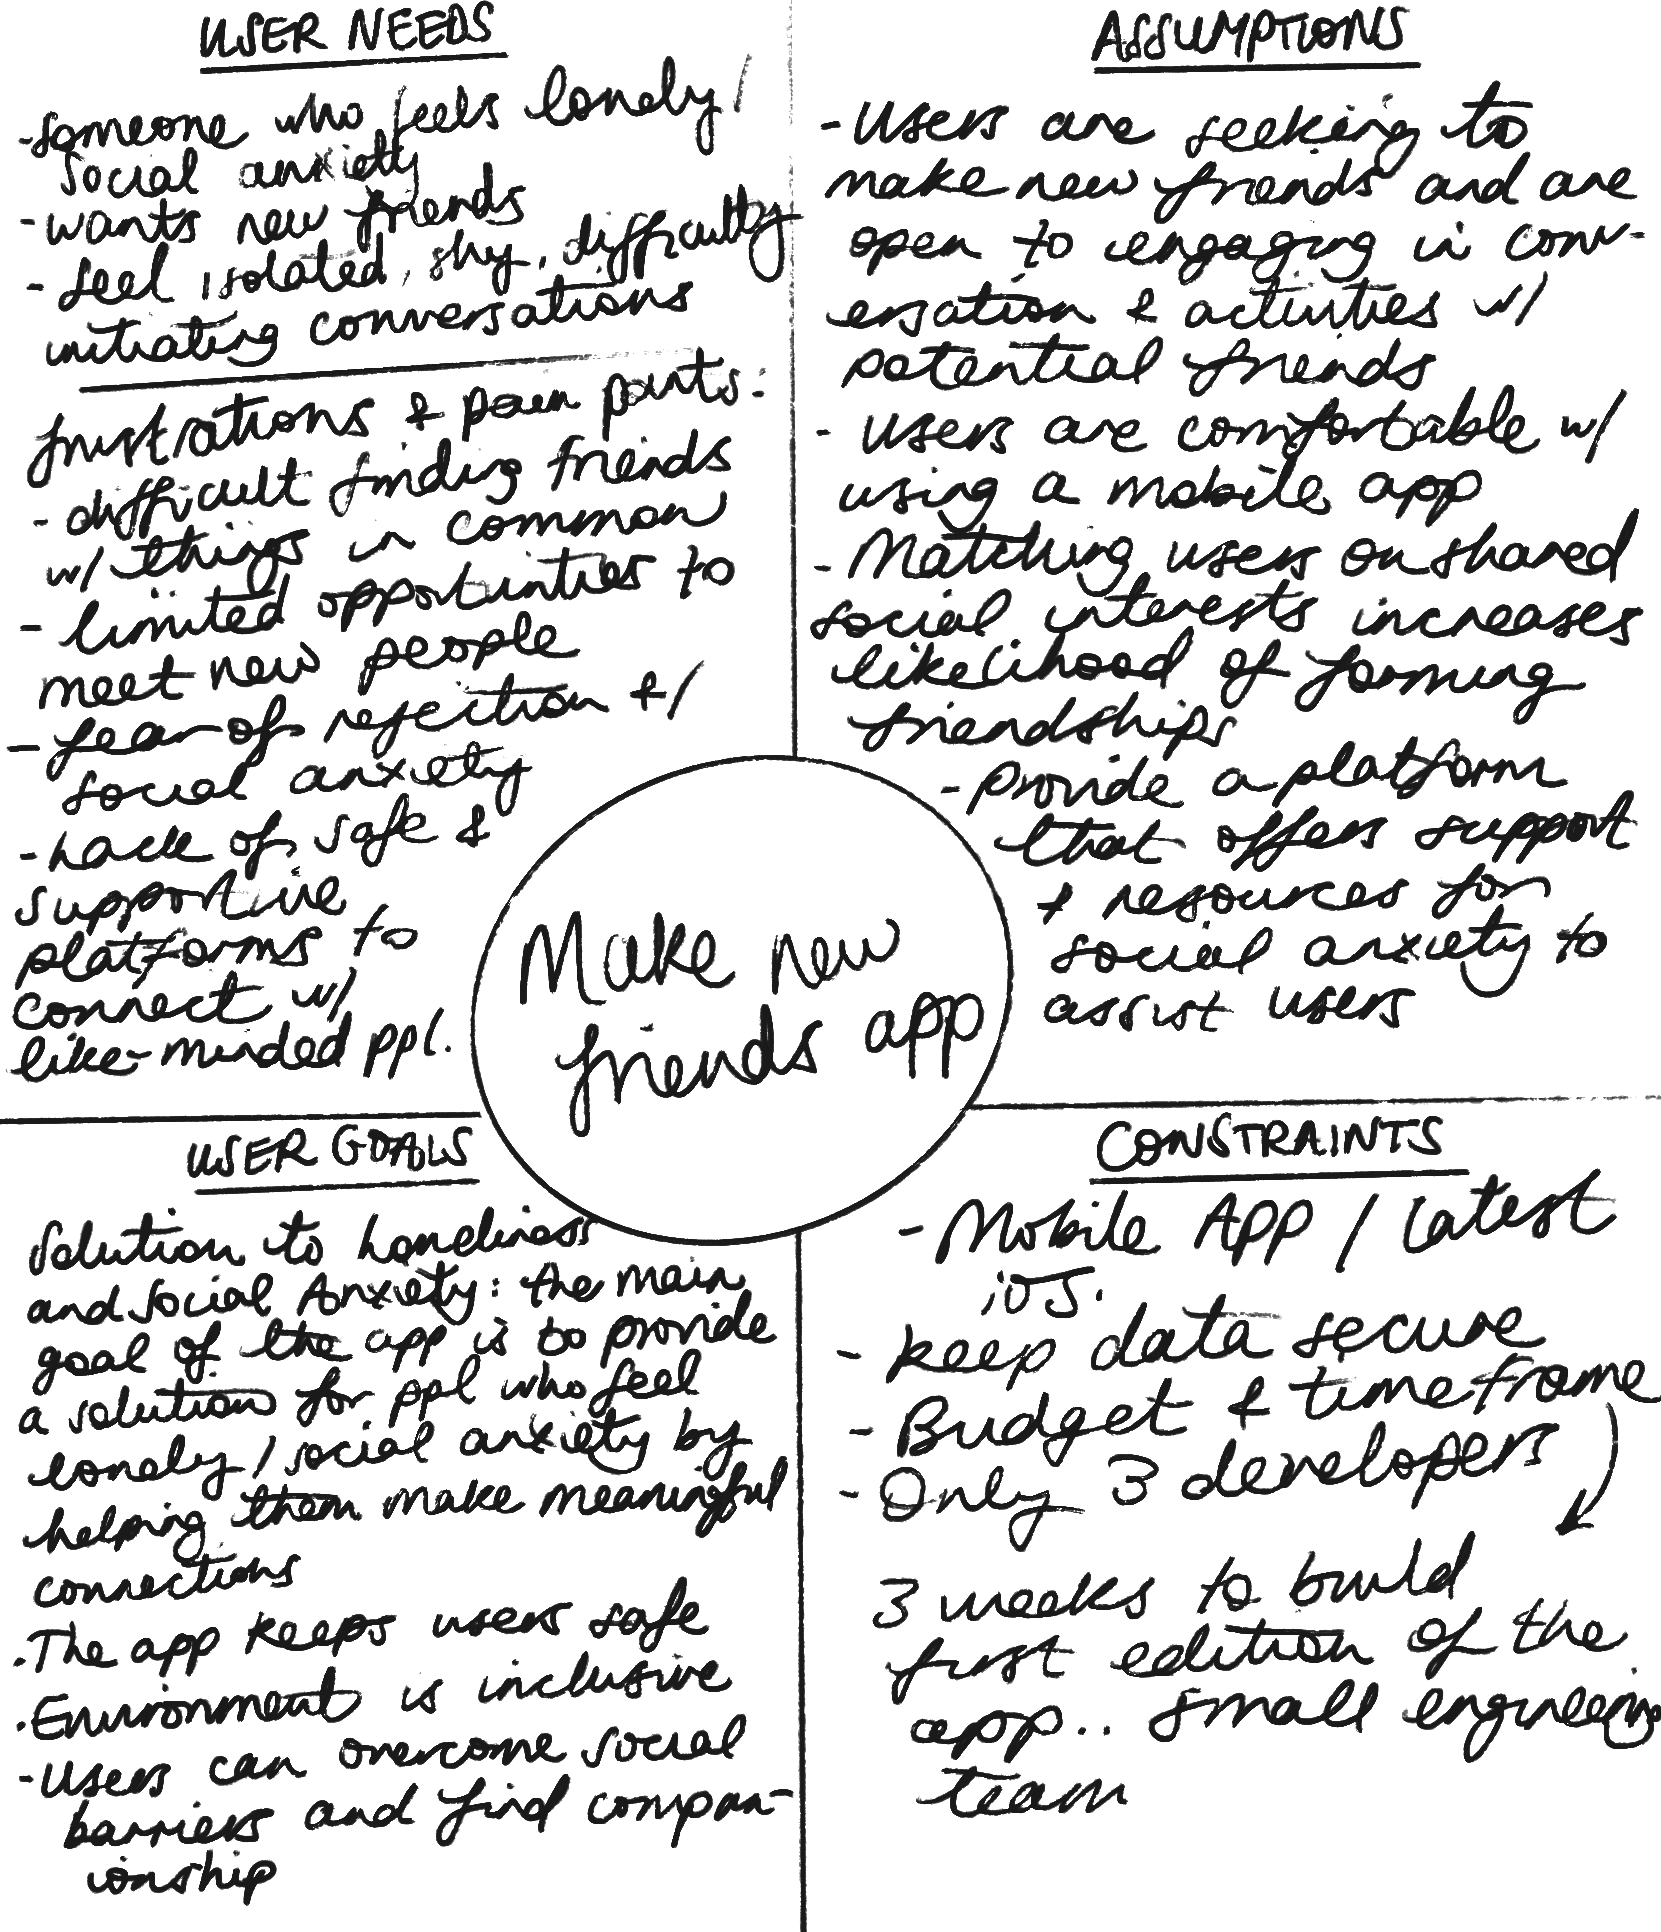 USER NEEDS
- someone who feels lonely /
social anxiety
- wants new friends
- feel isolated, shy, difficulty
initiating conversations
frustrations & pain points:
- difficult finding friends
w/ things in common
- limited opportunities to
meet new people
- fear of rejection & /
social anxiety
- Lack of safe &
supportive
platforms to
connect w/
like-minded ppl.
ASSUMPTIONS
- Users are seeking to
make new friends and are
open to engaging in conv-
ersation & activities w/
potential friends
- Users are comfortable w/
using a mobile app
- Matching users on shared
social interests increases
likelihood of forming
friendships
- provide a platform
that offers support
& resources for
social anxiety to
assist users
Make new
friends app
USER GOALS
Solution to Loneliness
and Social Anxiety: the main
goal of the app is to provide
a solution for ppl who feel
lonely / social anxiety by
helping them make meaningful
connections
. The app keeps users safe
. Environment is inclusive
- Users can overcome social
barriers and find compan-
ionship
CONSTRAINTS
- Mobile App / Latest
iOS.
- keep data secure
- Budget & timeframe
- Only 3 developers
3 weeks to build
first edition of the
app.. small engineering
team